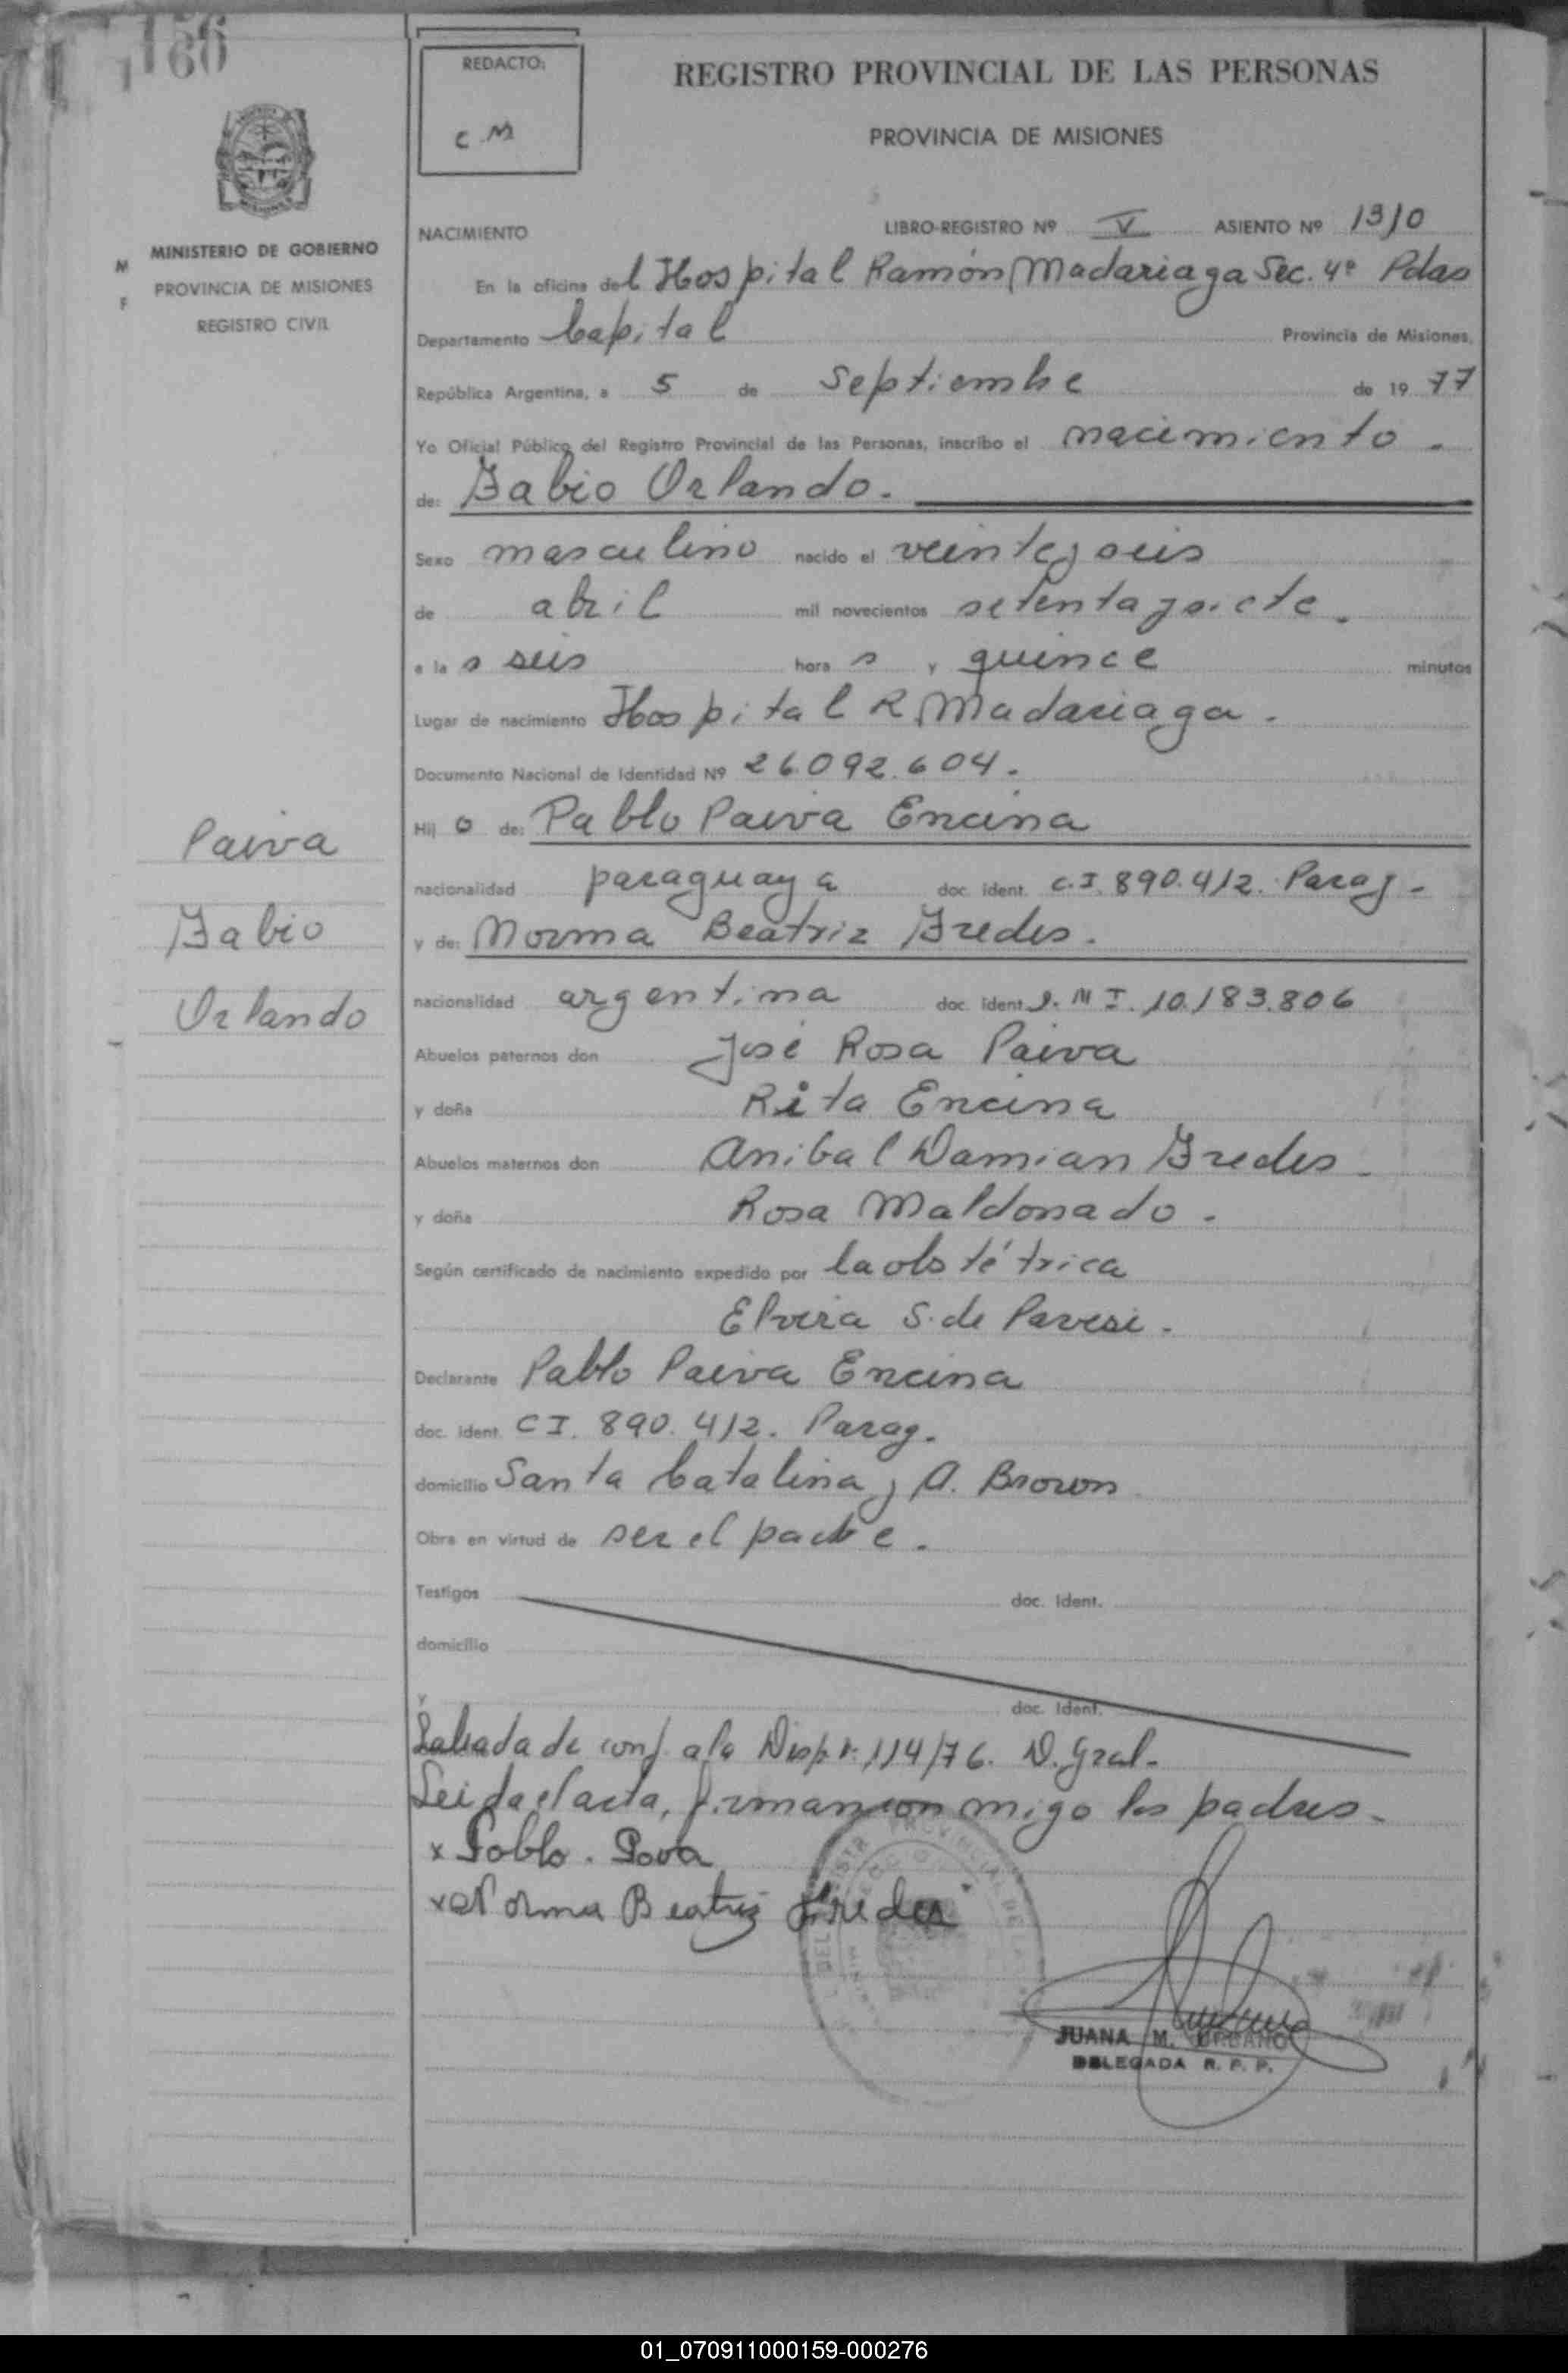 156
160
REDACTO:
C.M
REGISTRO PROVINCIAL DE LAS PERSONAS
PROVINCIA DE MISIONES
MINISTERIO DE GOBIERNO
PROVINCIA DE MISIONES
REGISTRO CIVIL
M
F
NACIMIENTO LIBRO-REGISTRO Nº V ASIENTO Nº 1310
En la oficina del Hospital Ramón Madariaga Sec. 4ª Pdas
Departamento Capital Provincia de Misiones,
República Argentina, a 5 de Septiembre de 1977
Yo Oficial Público del Registro Provincial de las Personas, inscribo el nacimiento.
de: Fabio Orlando.
Sexo masculino nacido el veinteyseis
de abril mil novecientos setentaysiete.
a las seis horas y quince minutos
Lugar de nacimiento Hospital R. Madariaga.
Documento Nacional de Identidad Nº 26.092.604.
Hijo de: Pablo Paiva Encina
nacionalidad paraguaya doc. ident. C.I. 890.412. Parag.
y de: Norma Beatriz Fredes.
nacionalidad argentina doc. ident. D.N.I. 10.183.806
Abuelos paternos don José Rosa Paiva
y doña Rita Encina
Abuelos maternos don Anibal Damian Fredes
y doña Rosa Maldonado.
Según certificado de nacimiento expedido por la obstétrica
Elvira S. de Pavesi.
Declarante Pablo Paiva Encina
doc. ident. CI. 890.412. Parag.
domicilio Santa Catalina y A. Brown
Obra en virtud de ser el padre.
Testigos doc. Ident.
domicilio
y doc. Ident.
Labrada de conf. a la Disp. Nº 114/76. D. Gral.
Leida el acta, firman con migo los padres.
x Pablo. Pava
x Norma Beatriz Fredes
JUANA M. URBANO
DELEGADA R. P. P.
Paiva
Fabio
Orlando
01_070911000159-000276